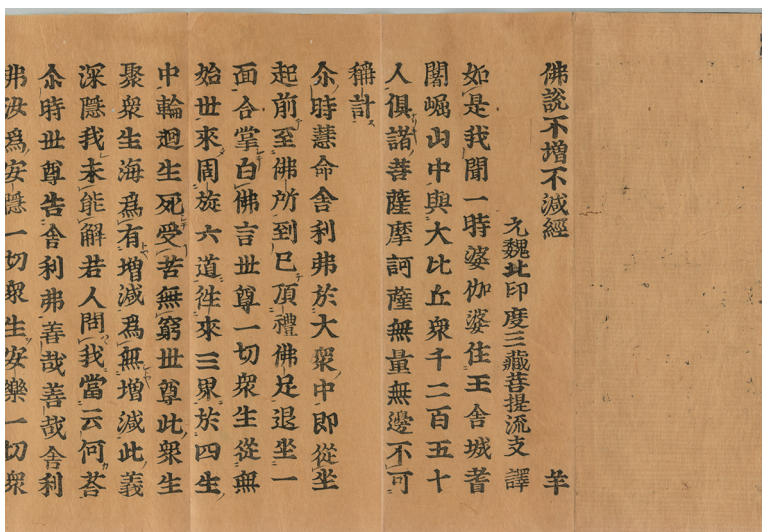 佛說不增不減經 羊
元魏北印度三藏菩提流支 譯
如是我聞一時婆伽婆住王舍城耆
闍崛山中與大比丘衆千二百五十
人俱諸菩薩摩訶薩無量無邊不可
稱計
尒時慧命舍利弗於大衆中即從坐
起前至佛所到已頂禮佛足退坐一
面合掌白佛言世尊一切衆生從無
始世來周旋六道徃來三界於四生
中輪迴生死受苦無窮世尊此衆生
聚衆生海爲有增減爲無增減此義
深隱我未能解若人問我當云何荅
尒時世尊告舍利弗善哉善哉舍利
弗汝爲安隱一切衆生安樂一切衆